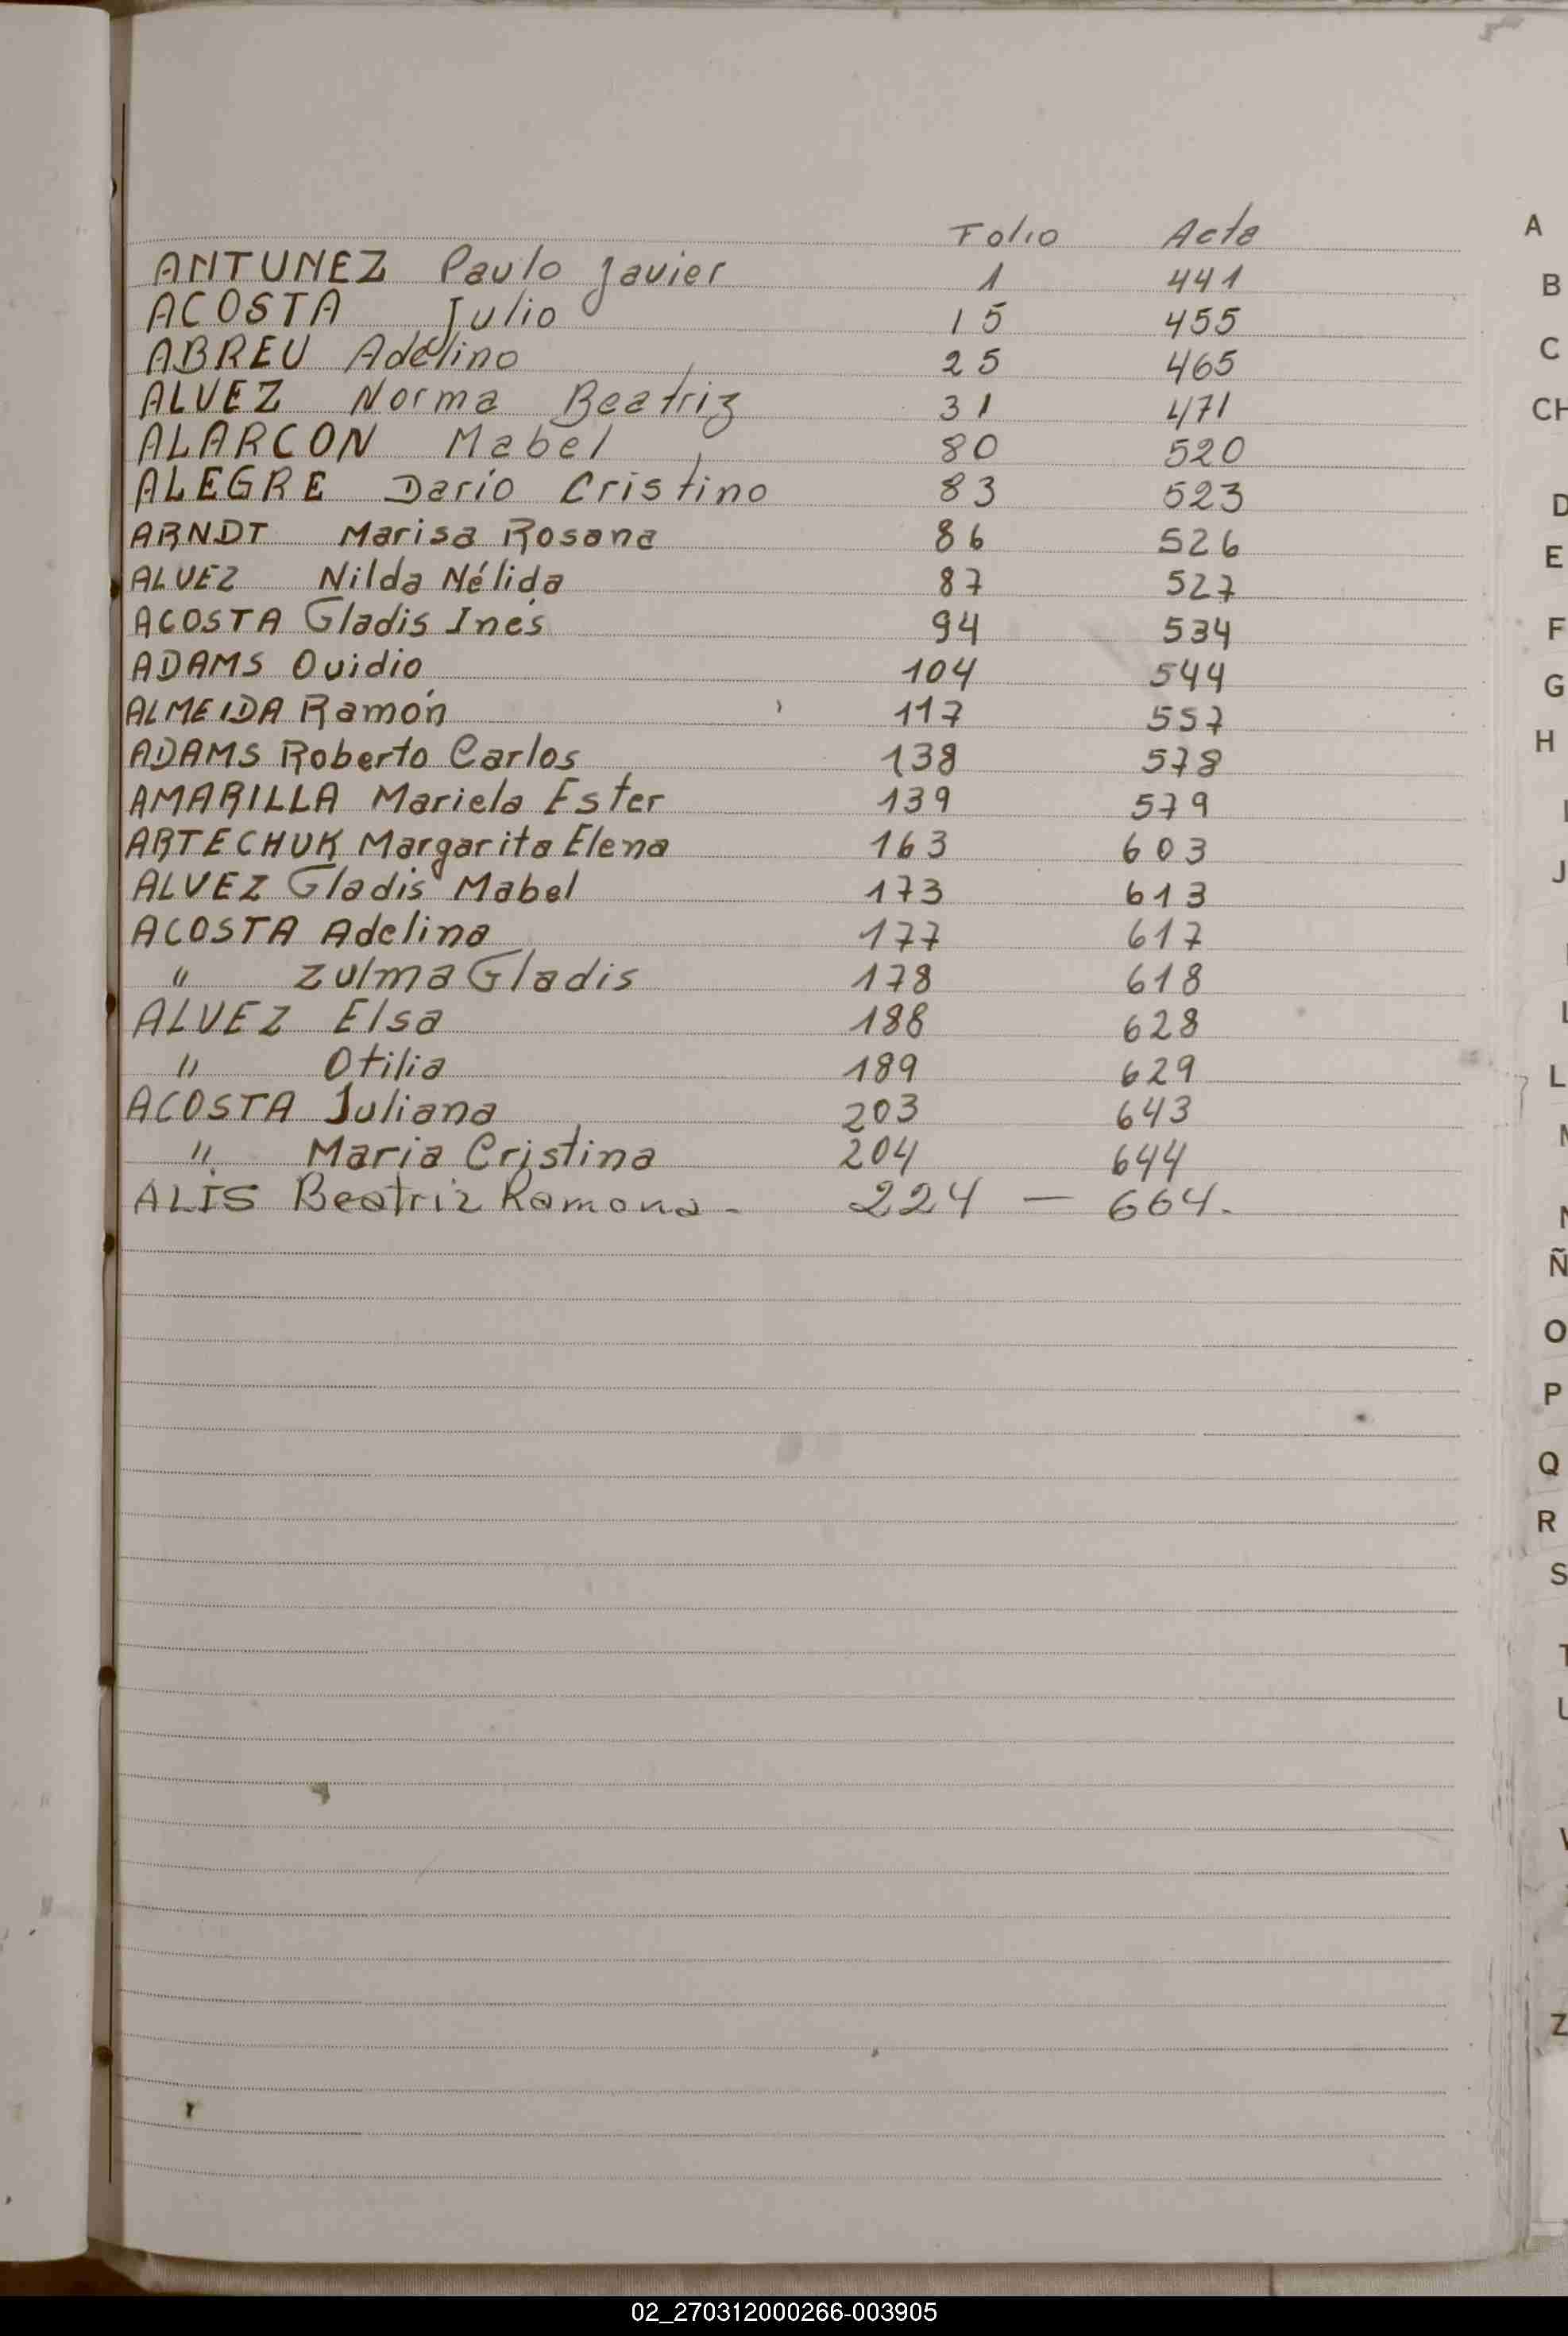 Folio Acta
ANTUNEZ Paulo Javier 1 441
ACOSTA Julio 15 455
ABREU Adelino 25 465
ALVEZ Norma Beatriz 31 471
ALARCON Mabel 80 520
ALEGRE Dario Cristino 83 523
ARNDT Marisa Rosana 86 526
ALVEZ Nilda Nélida 87 527
ACOSTA Gladis Inés 94 534
ADAMS Ovidio 104 544
ALMEIDA Ramón 117 557
ADAMS Roberto Carlos 138 578
AMARILLA Mariela Ester 139 579
ARTECHUK Margarita Elena 163 603
ALVEZ Gladis Mabel 173 613
ACOSTA Adelina 177 617
" Zulma Gladis 178 618
ALVEZ Elsa 188 628
" Otilia 189 629
ACOSTA Juliana 203 643
" Maria Cristina 204 644
ALIS Beatriz Ramona - 224 — 664.
A
B
C
CH
D
E
F
G
H
J
L
Ñ
O
P
Q
R
S
Z
02_270312000266-003905